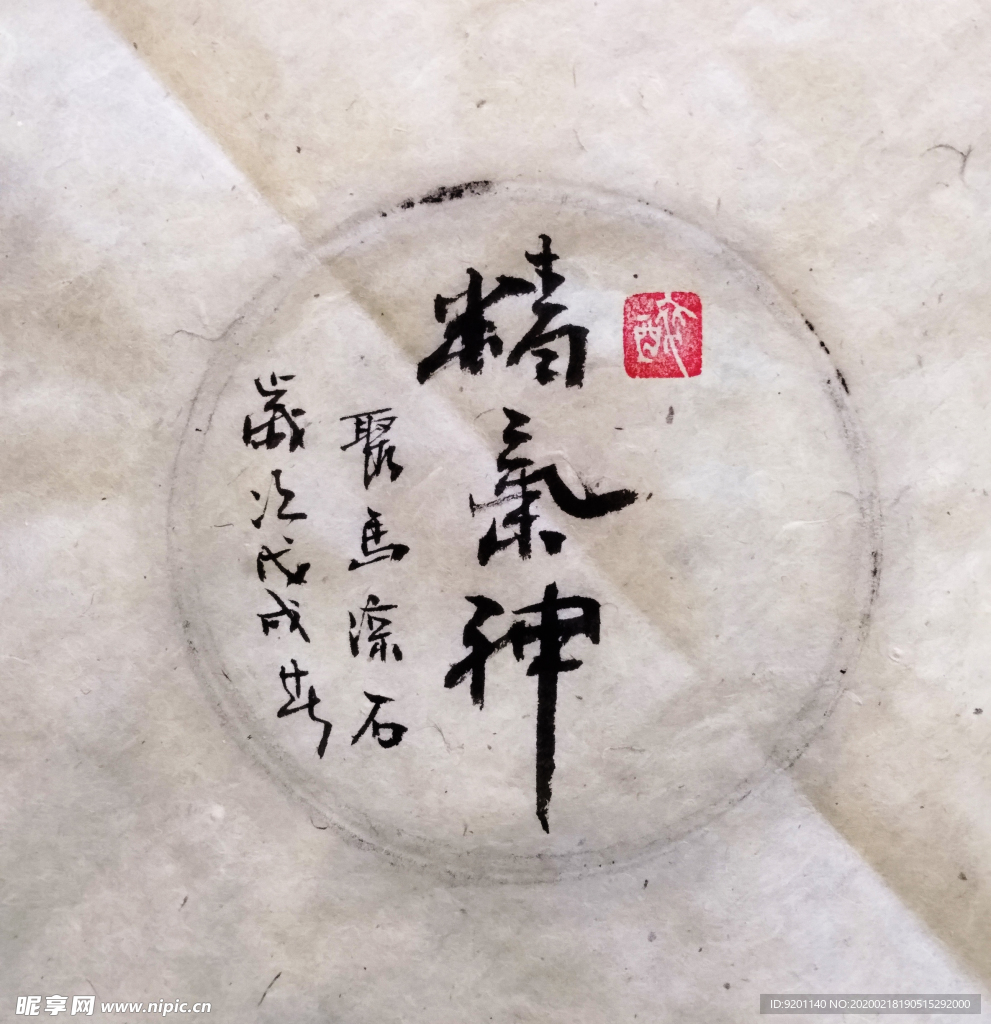 精氣神
醉
聚馬深石
歲次戊戌皆
昵享网 www.nipic.cn
ID:9201140 NO:20200218190515292000